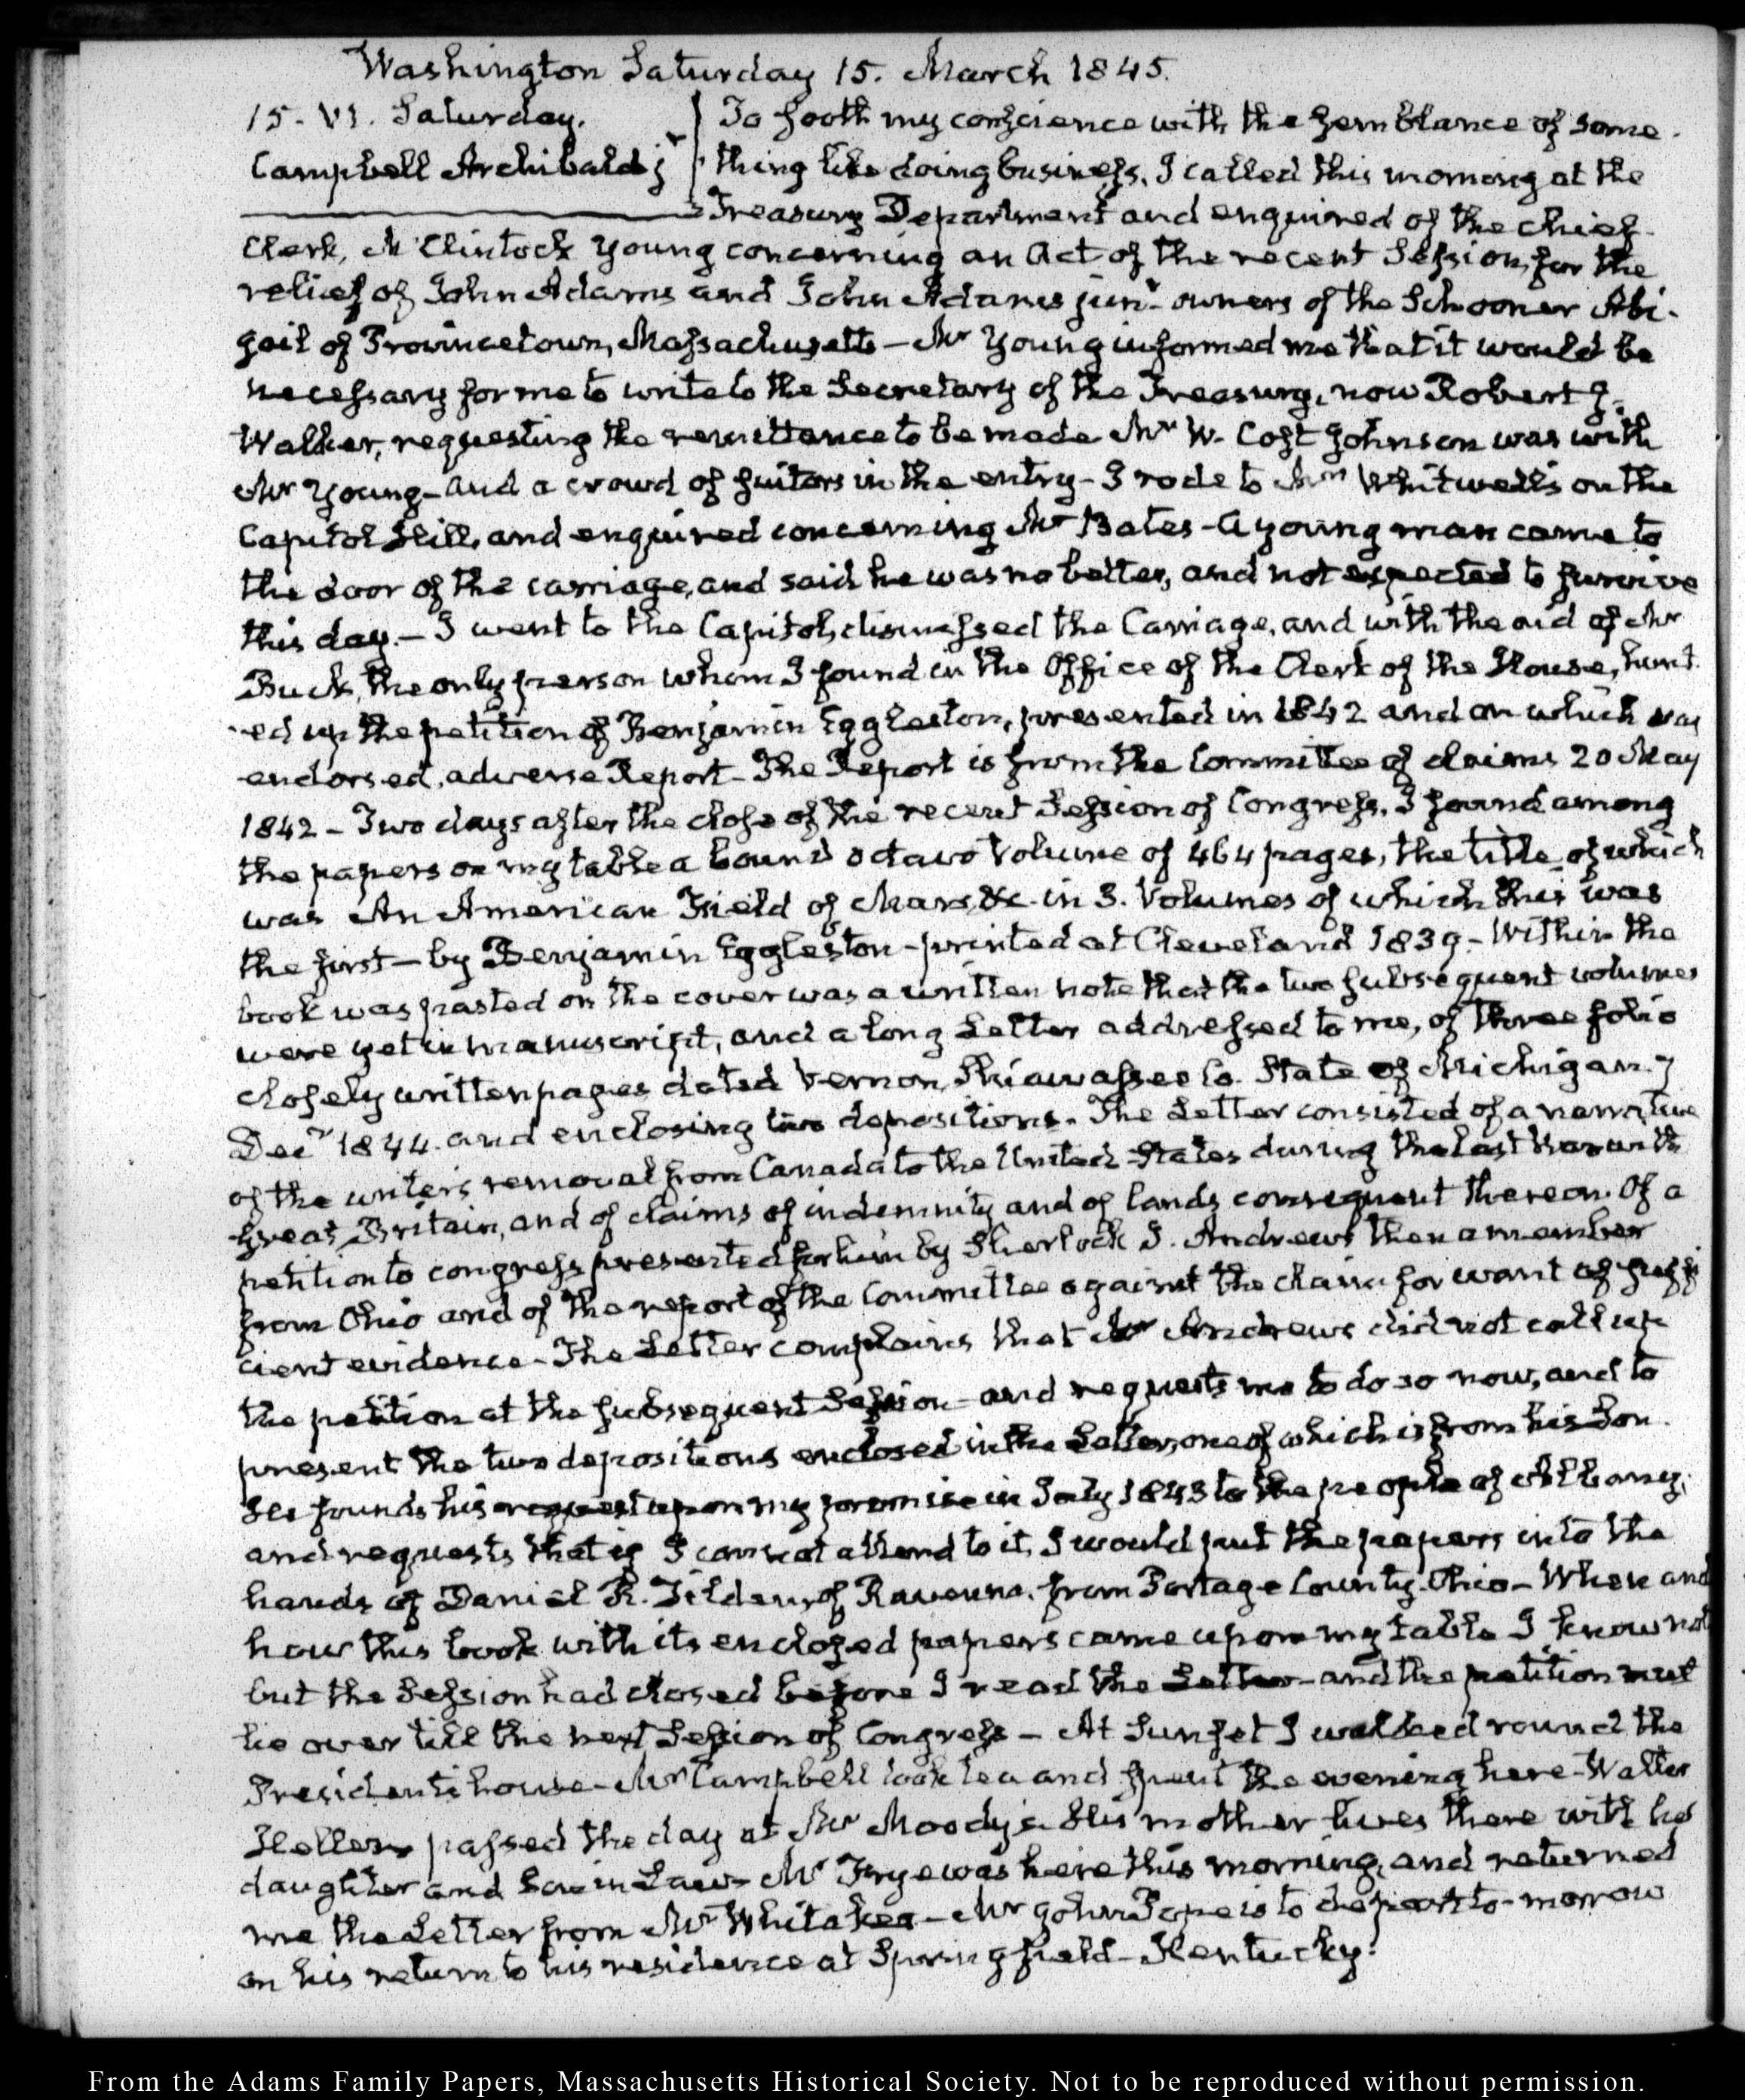 Washington Saturday 15. March 1845.
15. VI. Saturday.
Campbell Archibald jr
To sooth my conscience with the semblance of some-
thing like doing business, I called this morning at the
Treasury Department and enquired of the chief
Clerk, McClintock Young concerning an Act of the recent Session, for the
relief of John Adams and John Adams junr. owners of the Schooner Abi-
gail of Provincetown, Massachusetts — Mr Young informed me that it would be
necessary for me to write to the Secretary of the Treasury, now Robert J.
Walker, requesting the remittance to be made Mr W. Cost Johnson was with
Mr Young — and a crowd of suitors in the entry — I rode to Mrs Whitwell's on the
Capitol Hill, and enquired concerning Mr Bates — A young man came to
the door of the carriage, and said he was no better, and not expected to survive
this day. — I went to the Capitol, dismissed the Carriage, and with the aid of Mr
Buck, the only person whom I found in the Office of the Clerk of the House, hunt-
ed up the petition of Benjamin Eggleston, presented in 1842 and on which was
endorsed, adverse Report — The Report is from the Committee of claims 20 May
1842 — Two days after the close of the recent Session of Congress, I found among
the papers on my table a bound octavo Volume of 464 pages, the title of which
was An American Field of Mars, &c. in 3. Volumes of which this was
the first — by Benjamin Eggleston — printed at Cleveland 1839. — Within the
book was pasted on the cover was a written note that the two subsequent volumes
were yet in manuscript, and a long Letter addressed to me, of three folio
closely written pages dated Vernon, Shiawassee Co. State of Michigan. 7
Decr 1844. and enclosing two depositions. The Letter consisted of a narrative
of the writer's removal from Canada to the United States during the last War with
Great Britain, and of claims of indemnity and of lands consequent thereon. Of a
petition to congress presented for him by Sherlock J. Andrews then a member
from Ohio and of the report of the Committee against the claim for want of suffi-
cient evidence — The Letter complains that Mr Andrews did not call up
the petition at the subsequent Session — and requests me to do so now, and to
present the two depositions enclosed in the Letter, one of which is from his Son.
He founds his request upon my promise in July 1843 to the people of Albany,
and requests that if I cannot attend to it, I would put the papers into the
hands of Daniel R. Tilden, of Ravenna, from Portage County, Ohio — When and
how this book with its enclosed papers came upon my table I know not
but the Session had closed before I read the Letter — and the petition must
lie over till the next Session of Congress — At Sunset I walked round the
President's house — Mr Campbell took tea and spent the evening here — Walter
Hellen passed the day at Mr Moody's — His mother lives there with her
daughter and Son in Law — Mr Frye was here this morning, and returned
me the Letter from Mr Whitaker — Mr John Pope is to depart to-morrow
on his return to his residence at Springfield — Kentucky.
From the Adams Family Papers, Massachusetts Historical Society. Not to be reproduced without permission.